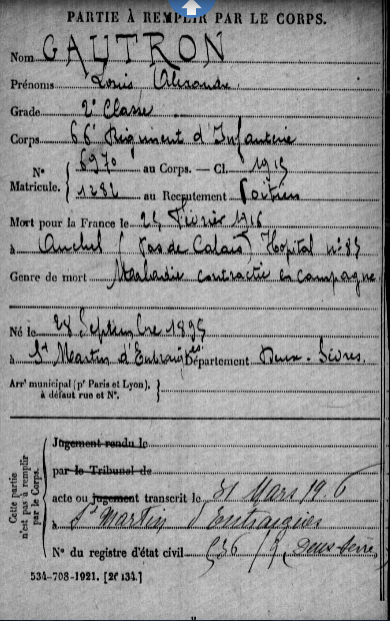 PARTIE À REMPLIR PAR LE CORPS.
Nom GAUTRON
Prénoms Louis Alexandre
Grade 2e Classe
Corps 66e Régiment d'Infanterie
N° 6970 au Corps. — Cl. 1915
Matricule. 1282 au Recrutement Poitiers
Mort pour la France le 25 Février 1916
à Auchel (Pas de Calais) Hôpital n° 83
Genre de mort Maladie contractée en campagne
Né le 28 Septembre 1895
à St Martin d'Entraigues Département Deux-Sèvres
Arrt municipal (pr Paris et Lyon),
à défaut rue et N°.
Cette partie
n'est pas à remplir
par le Corps.
Jugement rendu le
par le Tribunal de
acte ou jugement transcrit le 31 Mars 1916
à St Martin d'Entraigues
N° du registre d'état civil (Deux-Sèvres)
534-708-1921. [26134.]